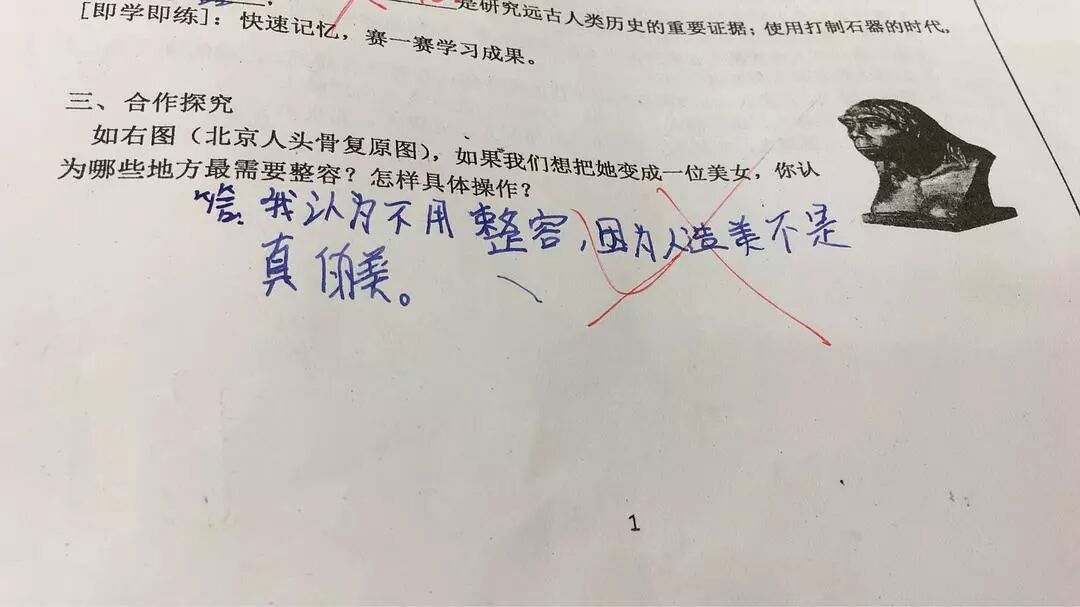 是研究远古人类历史的重要证据；使用打制石器的时代，
[即学即练]：快速记忆，赛一赛学习成果。
三、合作探究
如右图（北京人头骨复原图），如果我们想把她变成一位美女，你认
为哪些地方最需要整容？怎样具体操作？
答：我认为不用整容，因为人造美不是
真的美。
1